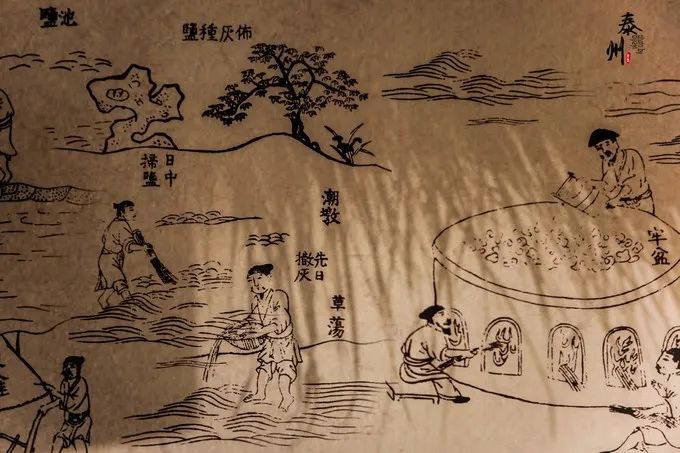 泰州
佈灰種鹽
池鹽
日中
掃鹽
潮
先日
撒灰
草蕩
牢盆